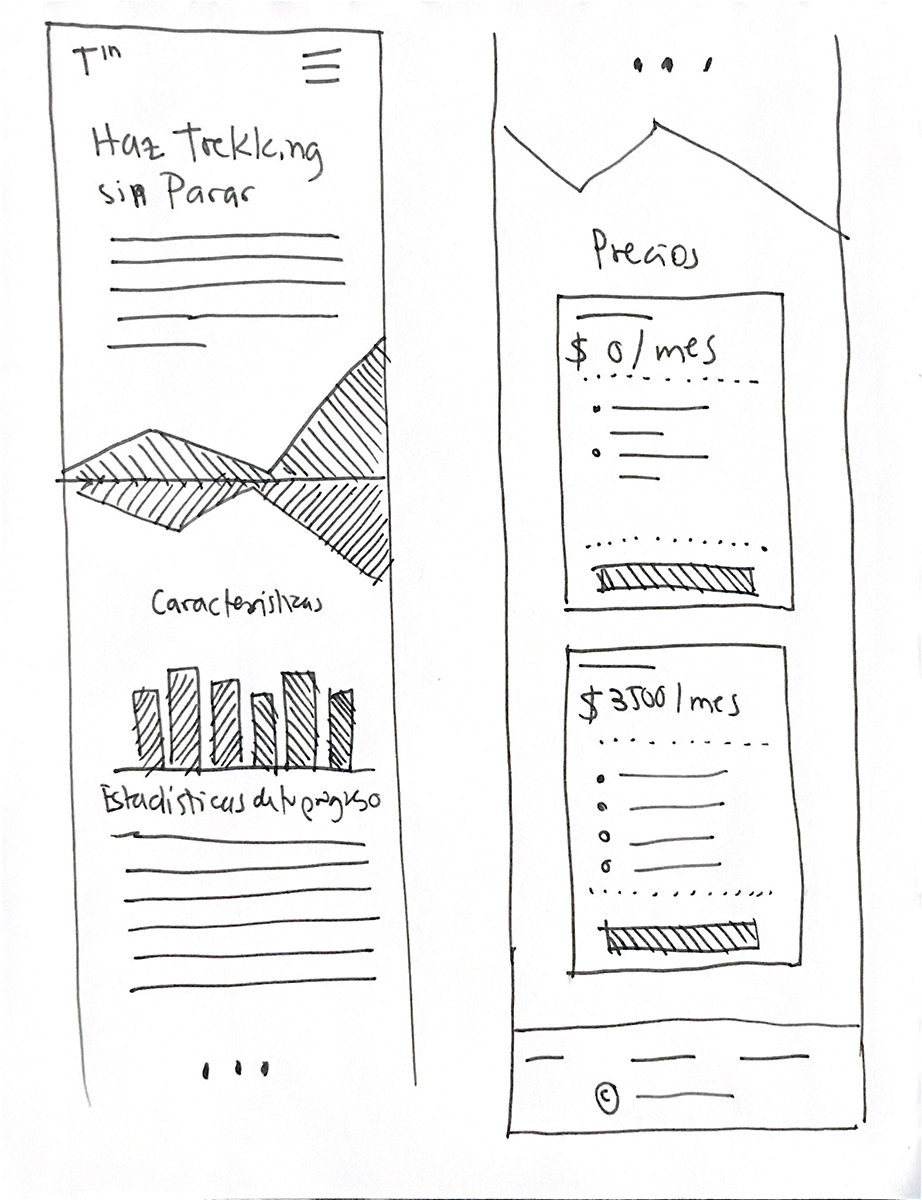 Tin
Haz Trekking
sin Parar
Características
Estadísticas de tu progreso
Precios
$ 0/mes
$3500/mes
©